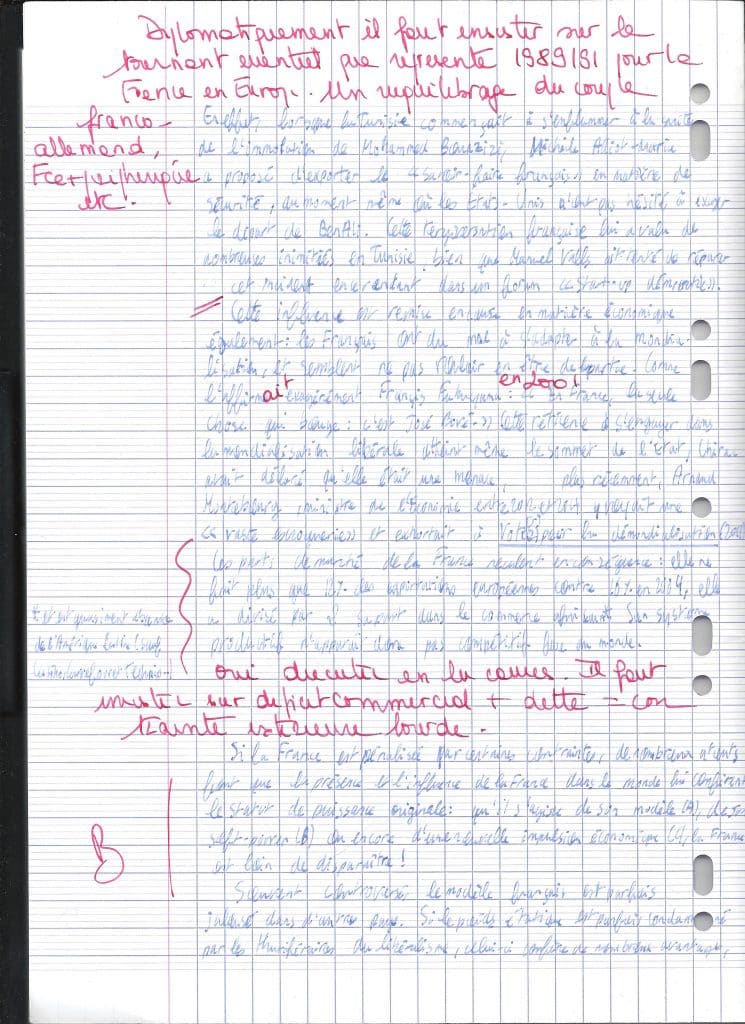 Diplomatiquement il faut insister sur le
tournant essentiel que représente 1989/91 pour la
France en Europe. Un rééquilibrage du couple
franco-
allemand,
etc.
En effet, lorsque la Tunisie commençait à s'enflammer à la suite
de l'immolation de Mohammed Bouazizi, Michèle Alliot-Marie
a proposé d'exporter le « savoir-faire français » en matière de
sécurité, au moment même où les Etats-Unis n'ont pas hésité à exiger
le départ de Ben Ali. Cette française lui a valu de
nombreuses inimitiés en Tunisie bien que Manuel Valls ait tenté de réparer
cet incident en dans un forum « start-up démocratie ».
Cette influence est remise en cause en matière économique
également : les Français ont du mal à s'adapter à la mondia-
lisation, et semblent ne pas vouloir en être
l'affirmait exagérément Francis Fukuyama : « En France, la seule
en 2000 !
chose qui bouge : c'est José Bové » Cette réticence à s'engager dans
la mondialisation libérale atteint même le sommet de l'Etat, Chirac
avait déclaré qu'elle était une menace, plus récemment, Arnaud
Montebourg, ministre de l'Economie entre 2012 et 2014, y voyait une
« vaste escroquerie » et exhortait à Votez pour la démondialisation (2011)
Les parts de marché de la France reculent en conséquence : elle ne
fait plus que 12% des exportations européennes contre 16% en 2004, elle
a divisé par 2 sa part dans le commerce Son système
productif n'apparaît donc pas compétitif face au monde.
* et est quasiment absente
de l'Amérique Latine (sauf
Casino, Carrefour et Technip-)
oui discuter en les causes. Il faut
insister sur deficit commercial + dette = con
trainte extérieure lourde.
Si la France est pénalisée par certaines contraintes, de nombreux atouts
font que la présence et l'influence de la France dans le monde lui confèrent
le statut de puissance originale : qu'il s'agisse de son modèle (A), de son
soft-power (B) ou encore d'une nouvelle impulsion économique (C), la France
est loin de disparaître !
B
Souvent controversé le modèle français est parfois
jalousé dans d'autres pays. Si le poids étatique est parfois condamné
par les thuriféraires du libéralisme, celui-ci confère de nombreux avantages,